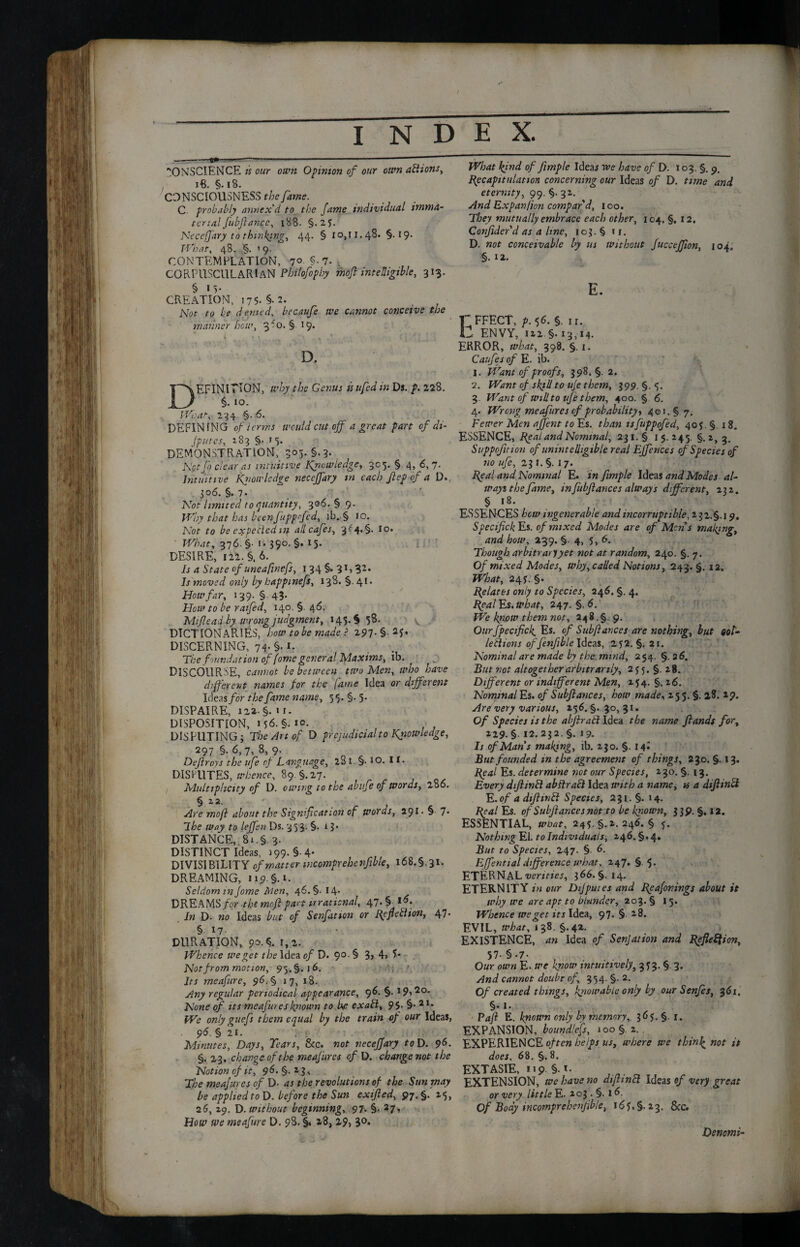 INDEX.
CONSCIENCE is our own Opinion of our own actions,
16. §. 18.
CONSCIOUSNESS the same.
C. probably annex'd to the same individual imma-
terial substance, 188. §. 25.
Necessary to thinking, 44. § 10,11. 48. §. 19.
What, 48. §. 19.
CONTEMPLATION, 70 §. 7.
CORPUSCULARIAN Philosophy most intelligible, 313.
§ 15.
CREATION, 175. §. 2.
Not to be denied, because we cannot conceive the
manner how, 360. § 19.
D.
DEFINITION, why the Genus is used in Ds. p. 228.
§. 10.
What, 234. §. 6.
DEFINING of terms would cut off a great part of di-
sputes, 283 §. 15.
DEMONSTRATION, 305. §. 3.
Not so clear as intuitive Knowledge, 305. § 4, 6, 7.
Intuitive Knowledge necessary in each step of a D.
306. §. 7.
Not limited to quantity, 306. § 9.
Why that has been supposed, ib. § 10.
Not to be expected in all cases, 364. §. 10.
What, 376. §. 1. 390. §. 15.
DESIRE, 122. §. 6.
Is a State of uneasiness, 134 §. 31, 32.
Is moved only by happiness, 138. §. 41.
How far, 139. §. 43.
How to be raised, 140. §. 46.
Mislead by wrong judgment, 145. § 58.
DICTIONARIES, how to be made? 297. § 25.
DISCERNING, 74. §. 1.
The foundation of some general Maxims, ib.
DISCOURSE, cannot be between two Men, who have
different names for the same Idea or different
Ideas for the same name, 55. §. 5.
DISPAIRE, 122. §. 11.
DISPOSITION, 156. §. 10.
DISPUTING; The Art of D prejudicial to Knowledge,
297 §. 6, 7, 8, 9.
Destroys the use of Language, 281 §. 10. 11.
DISPUTES, whence, 89 §. 27.
Multiplicity of D. owing to the abuse of words, 286.
§ 22.
Are most about the Signification of words, 291. § 7.
The way to lessen Ds. 353. §. 13.
DISTANCE, 81. §. 3.
DISTINCT Ideas, 199. §. 4.
DIVISIBILITY of matter incomprehensible, 168. §. 31.
DREAMING, 119 §. 1.
Seldom in some Men, 46. §. 14.
DREAMS for the most part irrational, 47. § 16.
In D. no Ideas but of Sensation or Reflection, 47.
§ 17.
DURATION, 90. §. 1, 2.
Whence we get the Idea of D. 90. § 3, 4, 5.
Not from motion, 95. §. 16.
Its measure, 96. § 17, 18.
Any regular periodical appearance, 96. §. 19, 20.
None of its measures known to be exact, 95. §. 21.
We only guess them equal by the train of our Ideas,
96 § 21.
Minutes, Days, Years, &c. not necessary to D. 96.
§. 23. change of the measures of D. change not the
Notion of it, 96. §. 23.
The measures of D. as the revolutions of the Sun may
be applied to D. before the Sun existed, 97. §. 25,
26, 29. D. without beginning, 97. §. 27.
How we measure D. 98. §. 28, 29, 30.
What kind of simple Ideas we have of D. 103. §. 9.
Recapitulation concerning our Ideas of D. time and
eternity, 99. §. 32.
And Expansion compar'd, 100.
They mutually embrace each other, 104. §. 12.
Consider'd as a line, 103. § 11.
D. not conceivable by us without succession, 104.
§. 12.
E.
EFFECT, p. 56. §. 11.
ENVY, 122 §. 13, 14.
ERROR, what, 398. §. 1.
Causes of E. ib.
1. Want of proofs, 398. §. 2.
2. Want of skill to use them, 399 §. 5.
3. Want of will to use them, 400. § 6.
4. Wrong measures of probability, 401. § 7.
Fewer Men assent to Es. than is supposed, 405 §. 18.
ESSENCE, Real and Nominal, 231. § 15. 245 §. 2, 3.
Supposition of unintelligible real Essences of Species of
no use, 231. §. 17.
Real and Nominal E. in simple Ideas and Modes al-
ways the same, in substances always different, 232.
§ 18.
ESSENCES how ingenerable and incorruptible, 232. §. 19.
Specifick Es. of mixed Modes are of Men's making,
and how, 239. §. 4, 5, 6.
Though arbitrary yet not at random, 240. §. 7.
Of mixed Modes, why, called Notions, 243. §. 12.
What, 245. §.
Relates only to Species, 246. §. 4.
Real Es. what, 247. §. 6.
We know them not, 248. §. 9.
Our specifick Es. of Substances are nothing, but col-
lections of sensible Ideas, 252. §. 21.
Nominal are made by the mind, 254. §. 26.
But not altogether arbitrarily, 255. §. 28.
Different or indifferent Men, 254. §. 26.
Nominal Es. of Substances, how made, 255. §. 28. 29.
Are very various, 256. §. 30, 31.
Of Species is the abstract Idea the name stands for,
229. §. 12. 232. §. 19.
Is of Man's making, ib. 230. §. 14.
But founded in the agreement of things, 230. §. 13.
Real Es. determine not our Species, 230. §. 13.
Every distinct abstract Idea with a name, is a distinct
E. of a distinct Species, 231. §. 14.
Real Es. of Substances not to be known, 339. §. 12.
ESSENTIAL, what, 245. §. 2. 246. § 5.
Nothing El. to Individuals, 246. §. 4.
But to Species, 247. § 6.
Essential difference what, 247. § 5.
ETERNAL verities, 366. §. 14.
ETERNITY in our Disputes and Reasonings about it
why we are apt to blunder, 203. § 15.
Whence we get its Idea, 97. § 28.
EVIL, what, 138. §. 42.
EXISTENCE, an Idea of Sensation and Reflection,
57. §. 7.
Our own E. we know intuitively, 353. §. 3.
And cannot doubt of, 354. §. 2.
Of created things, knowable only by our Senses, 361.
§. 1.
Past E. known only by memory, 365. §. 1.
EXPANSION, boundless, 100 §. 2.
EXPERIENCE often helps us, where we think not it
does. 68. §. 8.
EXTASIE, 119 §. 1.
EXTENSION, we have no distinct Ideas of very great
or very little E. 203. §. 16.
Of Body incomprehensible, 165. §. 23. &c.
Denomi-